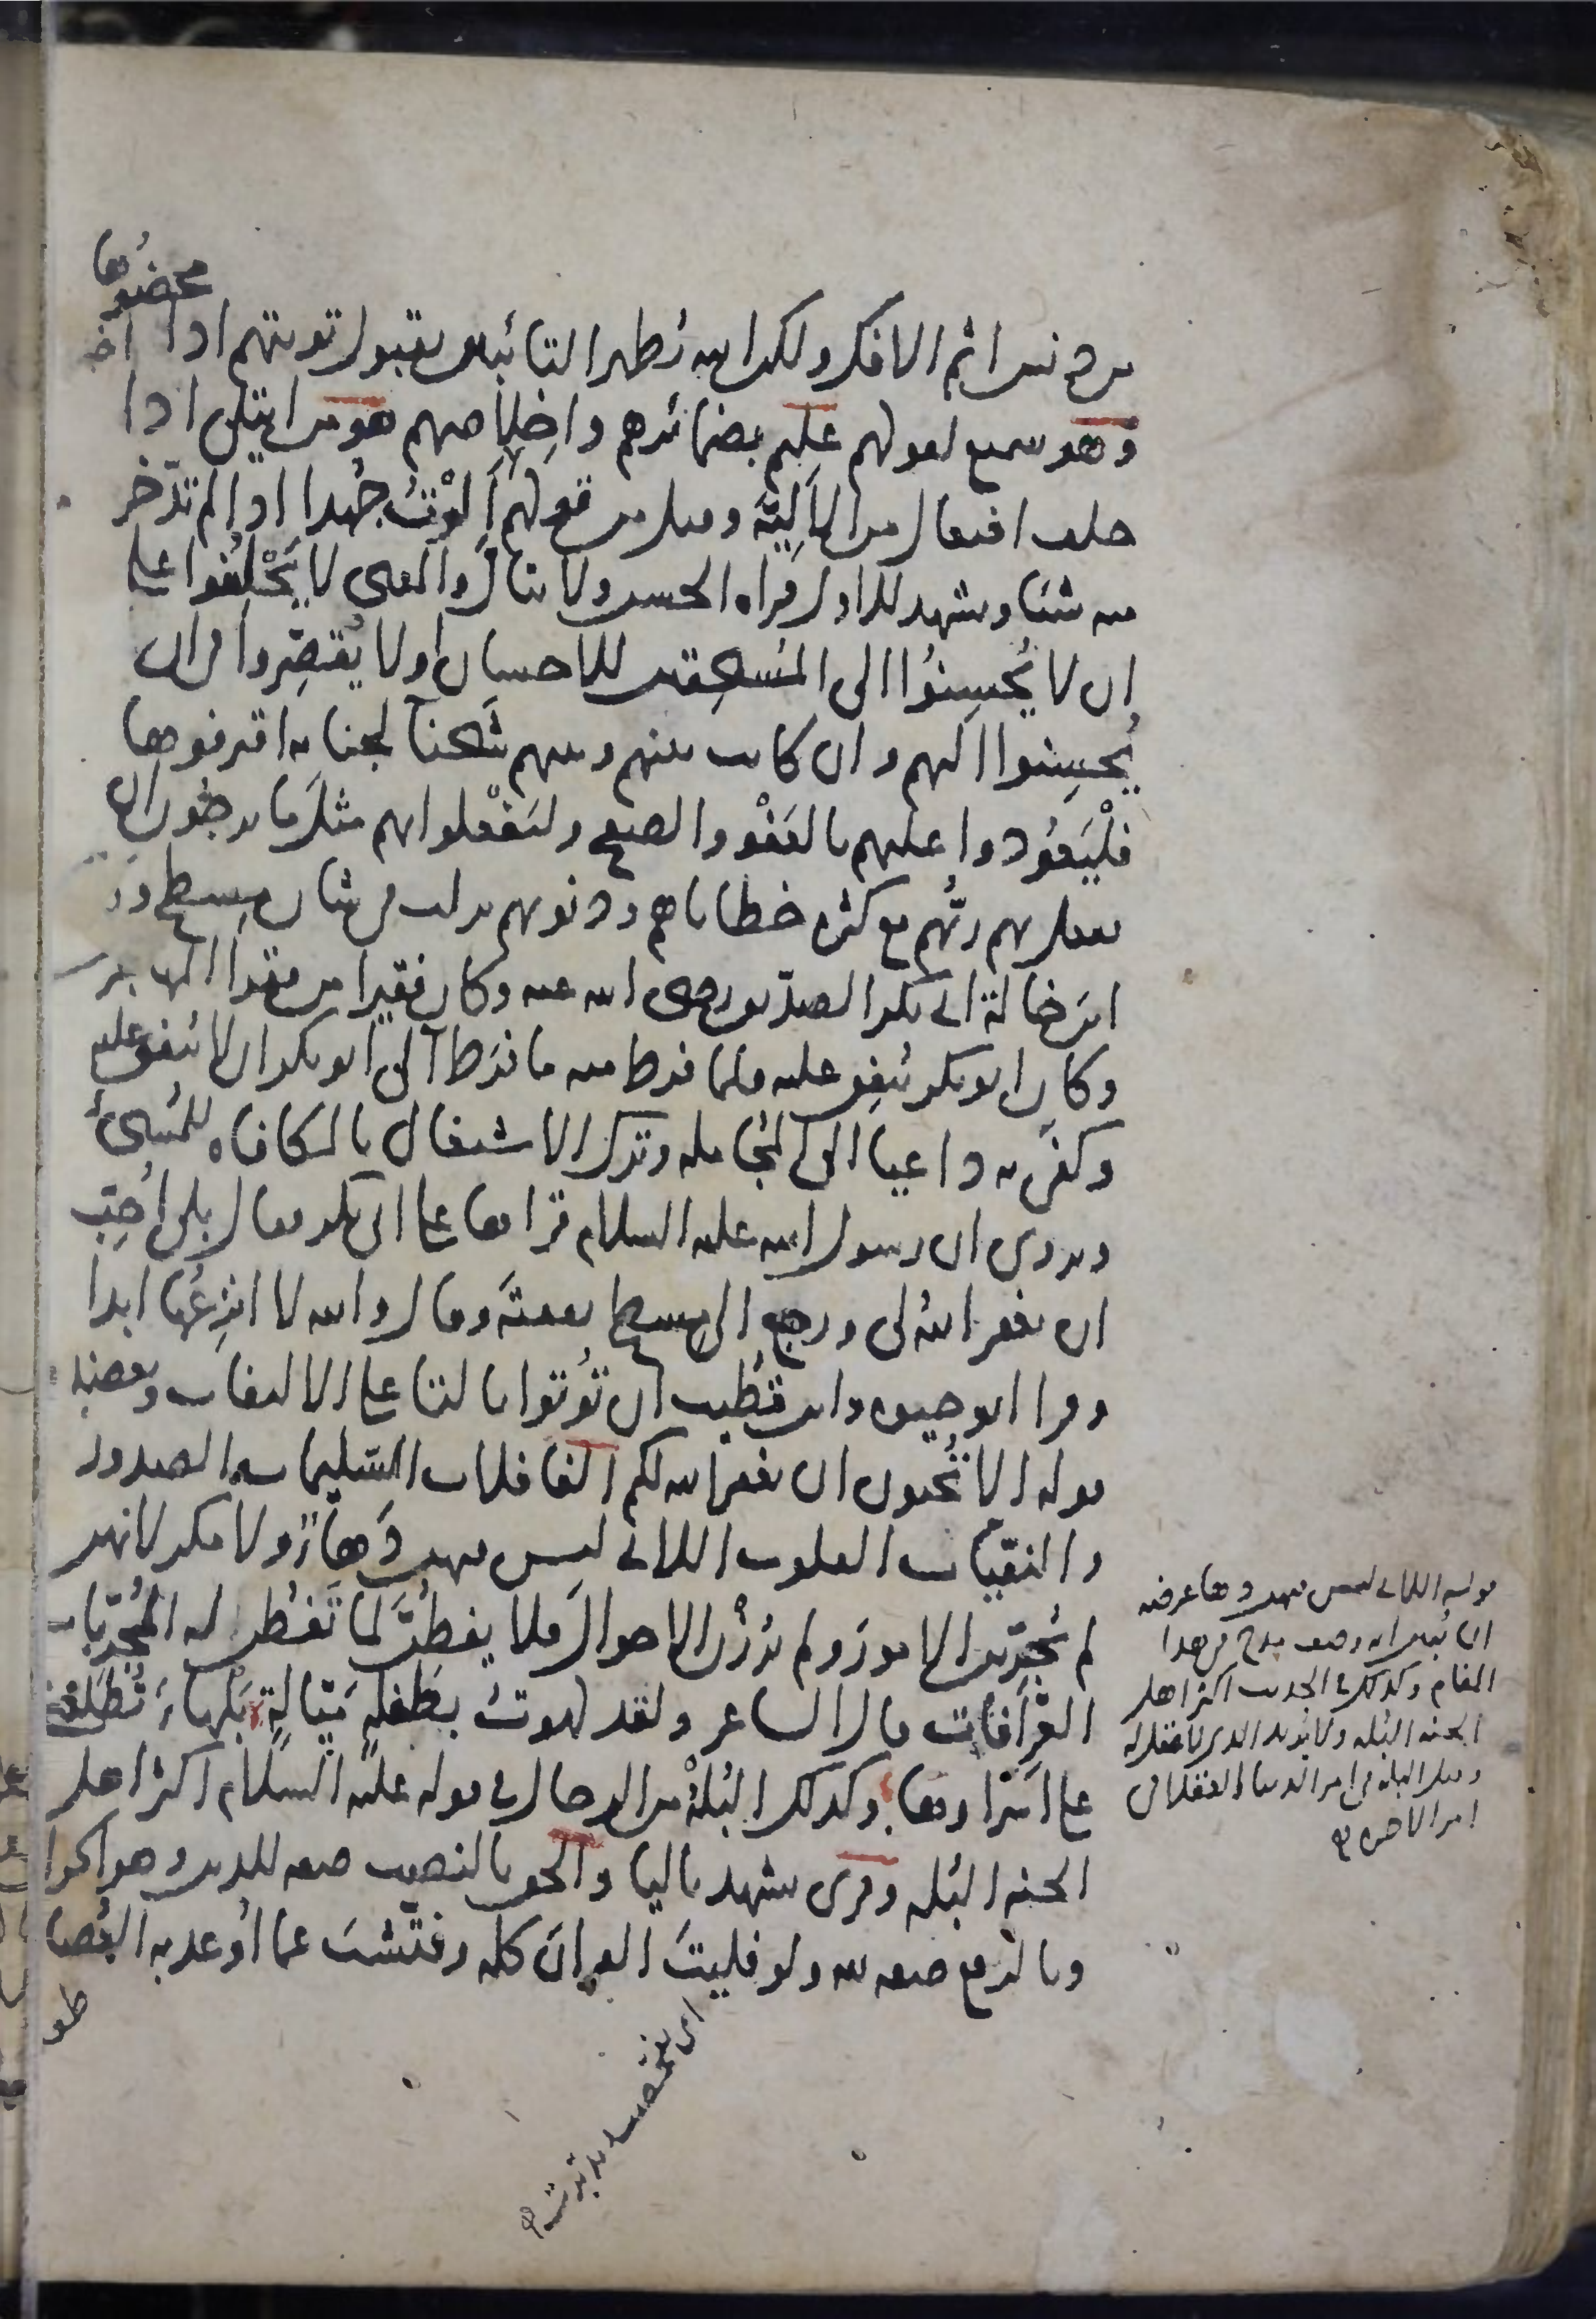 من دنس اثم الافك ولكن الله يُطهر التائبين بقبول توبتهم اذا
محضوها
وهو سميع لقولهم عليم بضمائرهم واخلاصهم هو من ايتلى اذا
حلف افتعال من الاَلِيَّة وقيل من قولهم اَلَوْتُ جُهدا اذا لم تدّخر
منه شئا ويشهد للاول قراه الحسن ولا يتالّ والمعنى لا يَحْلِفُوا على
ان لا يُحسِنُوا الى المستحقين للاحسان او لا يُقصِّروا فى ان
يُحسِنوا اليهم وان كانت بينهم وبينهم شحنآ لجنايه اقترفوها
فلْيَعُودوا عليهم بالعَفْو والصفح وليَفْعَلوا بهم مثلَ ما يرجُون ان
يفعل بهم ربُّهم مع كثره خطاياهم وذنوبهم نزلت فى شان مسطح و
ابن خالة ابى بكر الصدّيق رضى الله عنه وكان فقيرا من فقرا المهاجر
وكان ابو بكر يُنفِق عليه فلما فرط منه ما فَرَط آلى ابو بكر ان لا ينفق عليه
وكفى به داعيا الى المجامله وترك الاشتغال بالمكافاه للمُسىء
ويروى ان رسول الله عليه السلام قراها على ابى بكر فقال بلى اُحِبّ
ان يغفر اللهُ لى ورجع الى مسطح نفقتَه وقال والله لا انزِعُها ابدا
وقرا ابو حيوه وابن قُطَيب ان تُوتوا بالتا على الالتفات ويعضِده
قوله الا تُحبون ان يغفر الله لكم الغافلات السّليمات الصدور
والنقيّات القلوب اللاتى ليس فيهن دَهآءٌ ولا مكر لانهن
لم يُجرّبن الامورَ ولم يَرُزْن الاحوالَ فلا يفطُنَّ لما تَفْطُن له المُجَرّبات
العَرّافات قال الشاعر ولقد لهوتُ بطَفْلةٍ ميّالةٍ بَلْهاءَ تُطْلِعُنى
على اَسْرارها وكذلك البُلْهُ من الرجال فى قوله عليه السلام اكثر اهل
الجنه البُله وقرى يشهد باليا والحق بالنصب صفه للدين وهو الجزا
وبالرفع صفه لله ولو فَلَيتَ القران كله وفتّشتَ عما اُوعد به العُصا
قوله اللاتى ليس فيهن دها غرضه
ان يُبين انه وصف مدح فى هذا
المقام وكذلك فى الحديث اكثر اهل
الجنه البُله ولا يُريد الذى لا عقل له
وقيل البله فى امر الدنيا والعقلا فى
امر الاخره